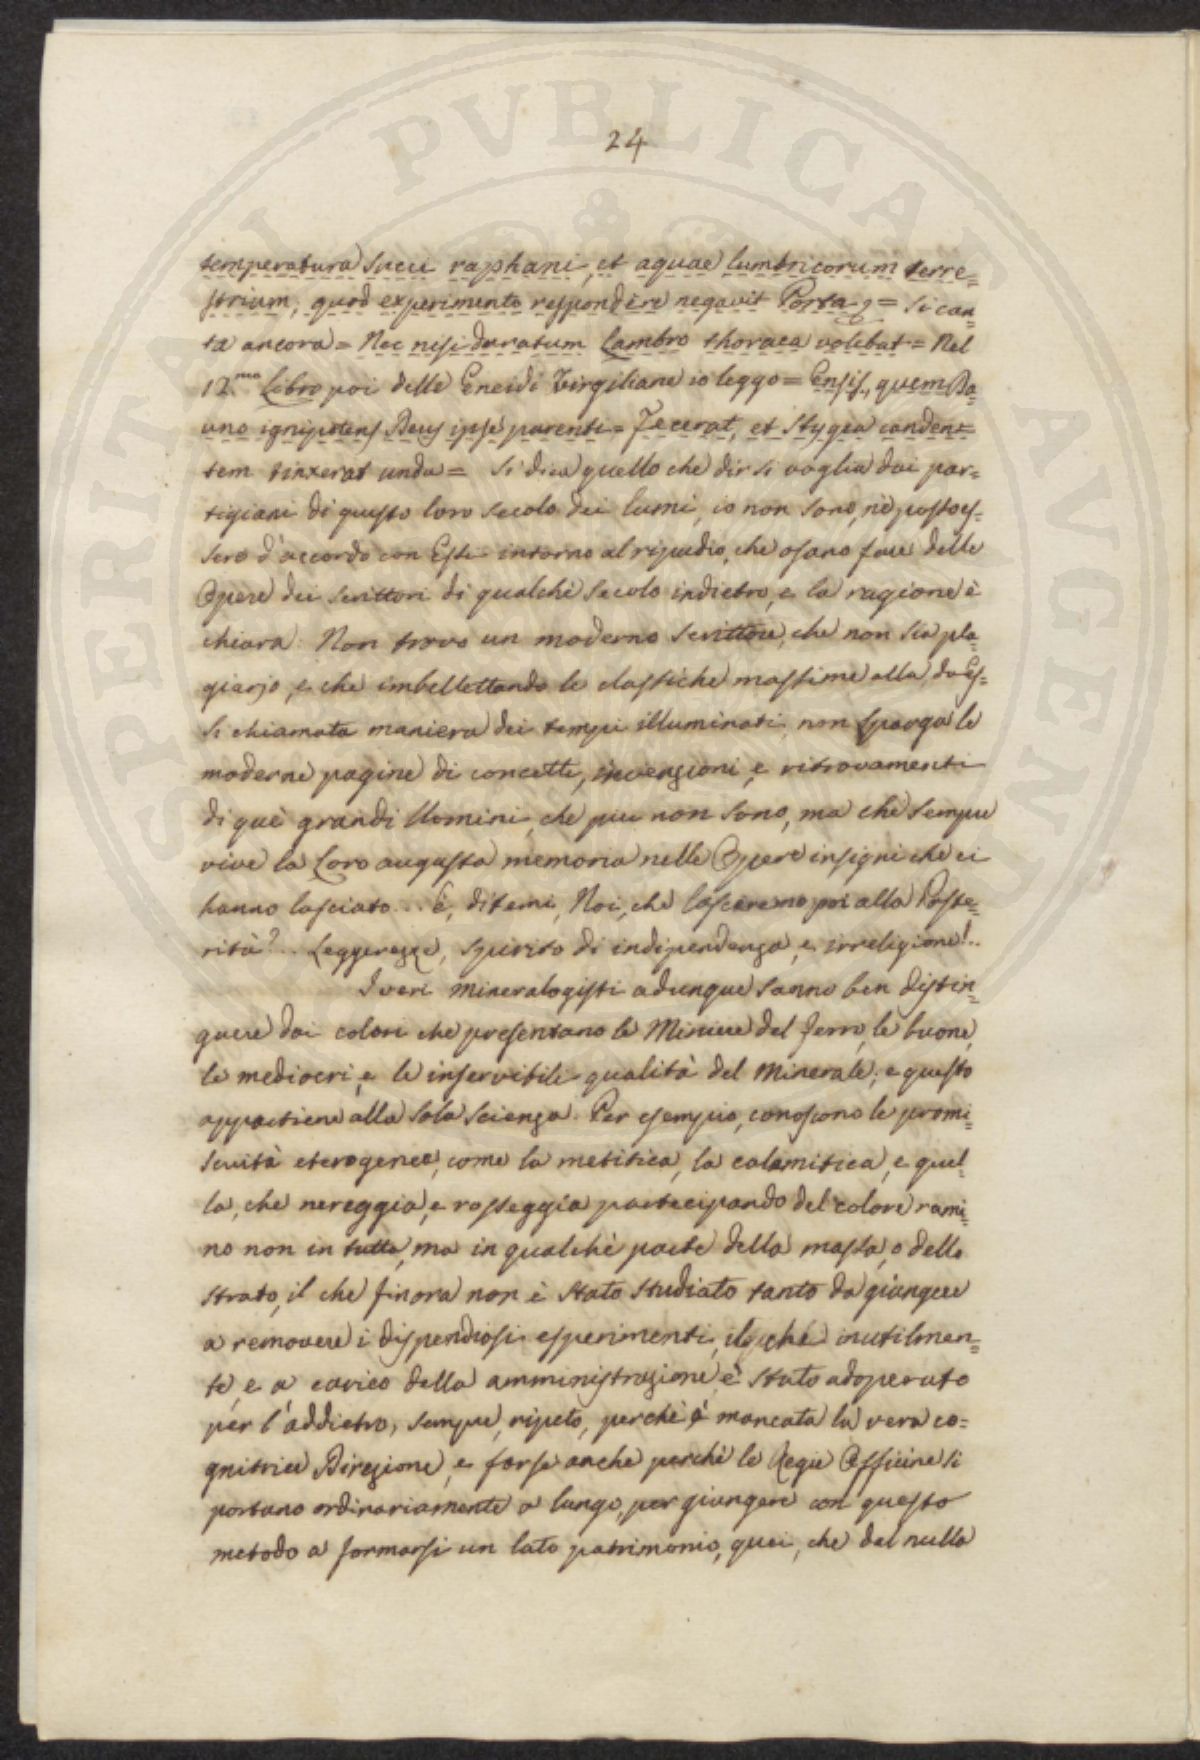 24
temperatura succi raphani, et aquae lumbricorum terre=
strium, quod experimento respondere negavit Porta = Si can=
ta ancora = Nec nisi duratum Lambro thoraca volebat = Nel
12.mo Libro poi delle Eneidi Virgiliane io leggo = Ensis, quem Da=
uno ignipotens Deus ipse parenti = Fecerat, et Stygea canden=
tem tinxerat unda = Si dica quello che dir si voglia dai par=
tigiani di questo loro secolo dei lumi, io non sono, nè posso es=
sere d'accordo con Essi intorno al ripudio, che osano fare delle
Opere dei scrittori di qualche secolo indietro, e la ragione è
chiara. Non trovo un moderno scrittore, che non sia pla=
giario, e che imbellettando le classiche massime alla da Es=
si chiamata maniera dei tempi illuminati, non sparga le
moderne pagine di concetti, invenzioni, e ritrovamenti
di quei grandi Uomini, che piu non sono, ma che sempre
vive la Loro augusta memoria nelle Opere insigni che ci
hanno lasciato... E, ditemi, Noi, che lasceremo poi alla Poste=
rità?... Leggerezze, spirito di indipendenza, e irreligione!..
I veri Mineralogisti adunque sanno ben distin=
guere dai colori che presentano le Miniere del ferro, le buone,
le mediocri, e le inservibili qualità del Minerale; e questo
appartiene alla sola scienza. Per esempio, conoscono le promi=
scuità eterogenee, come la metitica, la calamitica, e quel=
la, che nereggia, e rosseggia partecipando del colore rami=
no non in tutto, ma in qualche parte della massa, o dello
strato, il che finora non è stato studiato tanto da giungere
a removere i dispendiosi esperimenti, il che inutilmen=
te, e a carico della amministrazione è stato adoperato
per l'addietro, sempre, ripeto, perchè è mancata la vera co=
gnitrice Direzione, e forse anche perchè le Regie Officine si
portano ordinariamente a lungo, per giungere con questo
metodo a formarsi un lato patrimonio, quei, che dal nulla
SPERITAL PVBLICAE AVGEND